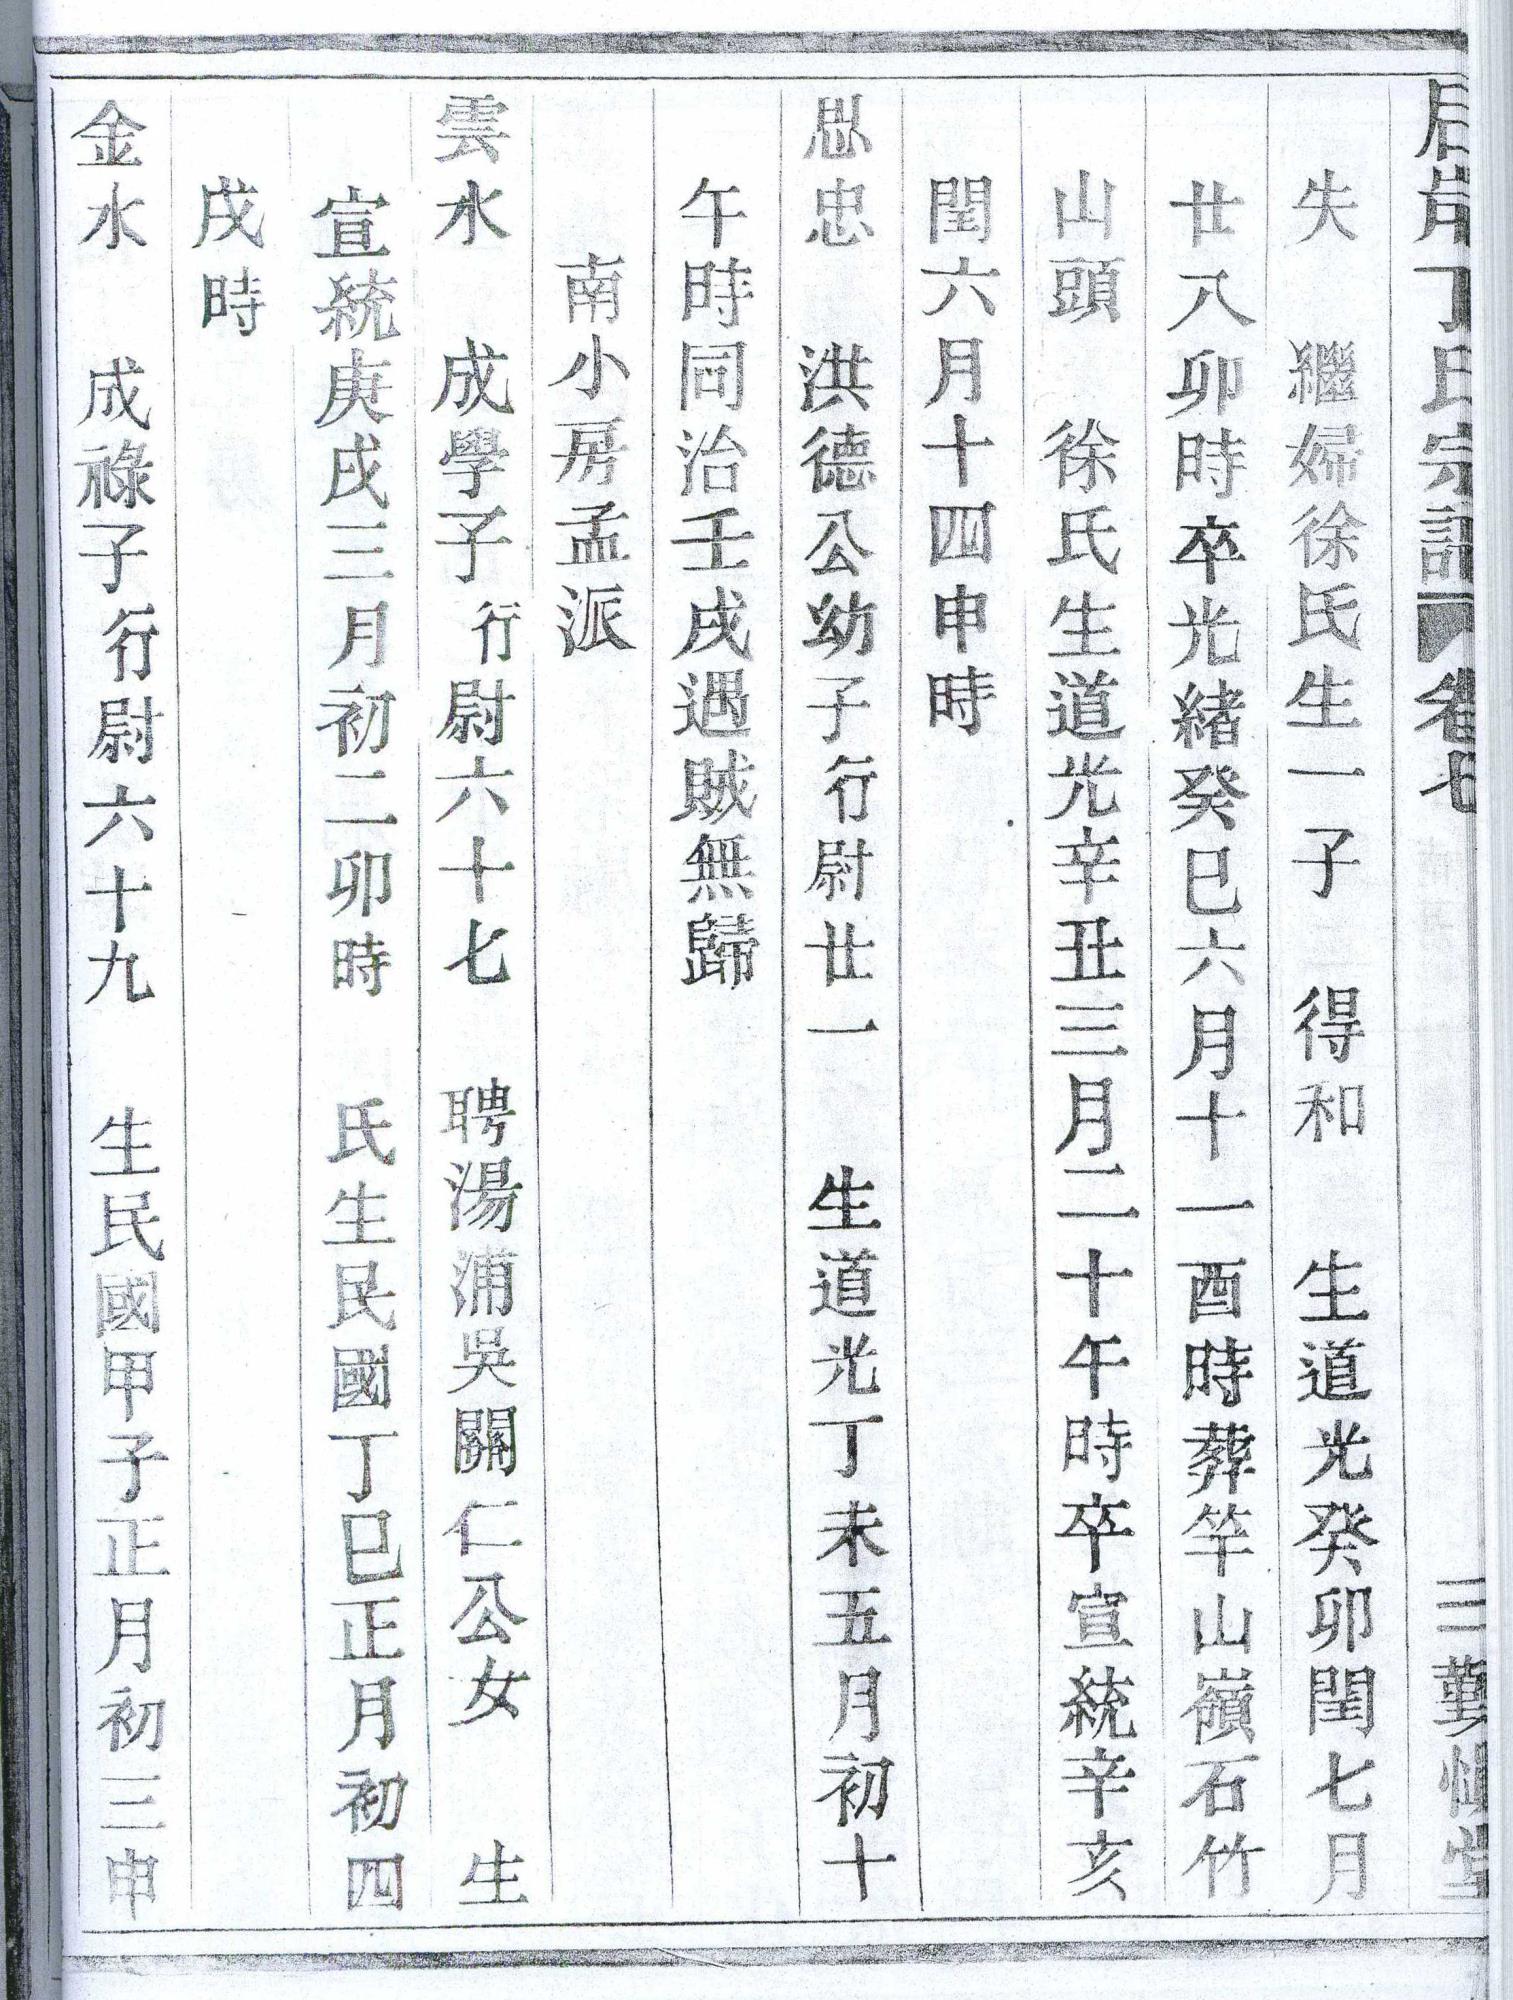 后岸丁氏宗譜 卷七 三 勤慎堂
失 繼婦徐氏生一子 得和 生道光癸卯閏七月
廿八卯時卒光緒癸巳六月十一酉時葬竿山嶺石竹
山頭 徐氏生道光辛丑三月二十午時卒宣統辛亥
閏六月十四申時
思忠 洪德公幼子行尉廿一 生道光丁未五月初十
午時同治壬戌遇賊無歸
南小房孟派
雲水 成學子行尉六十七 聘湯浦吳關仁公女 生
宣統庚戌三月初二卯時 氏生民國丁巳正月初四
戌時
金水 成祿子行尉六十九 生民國甲子正月初三申